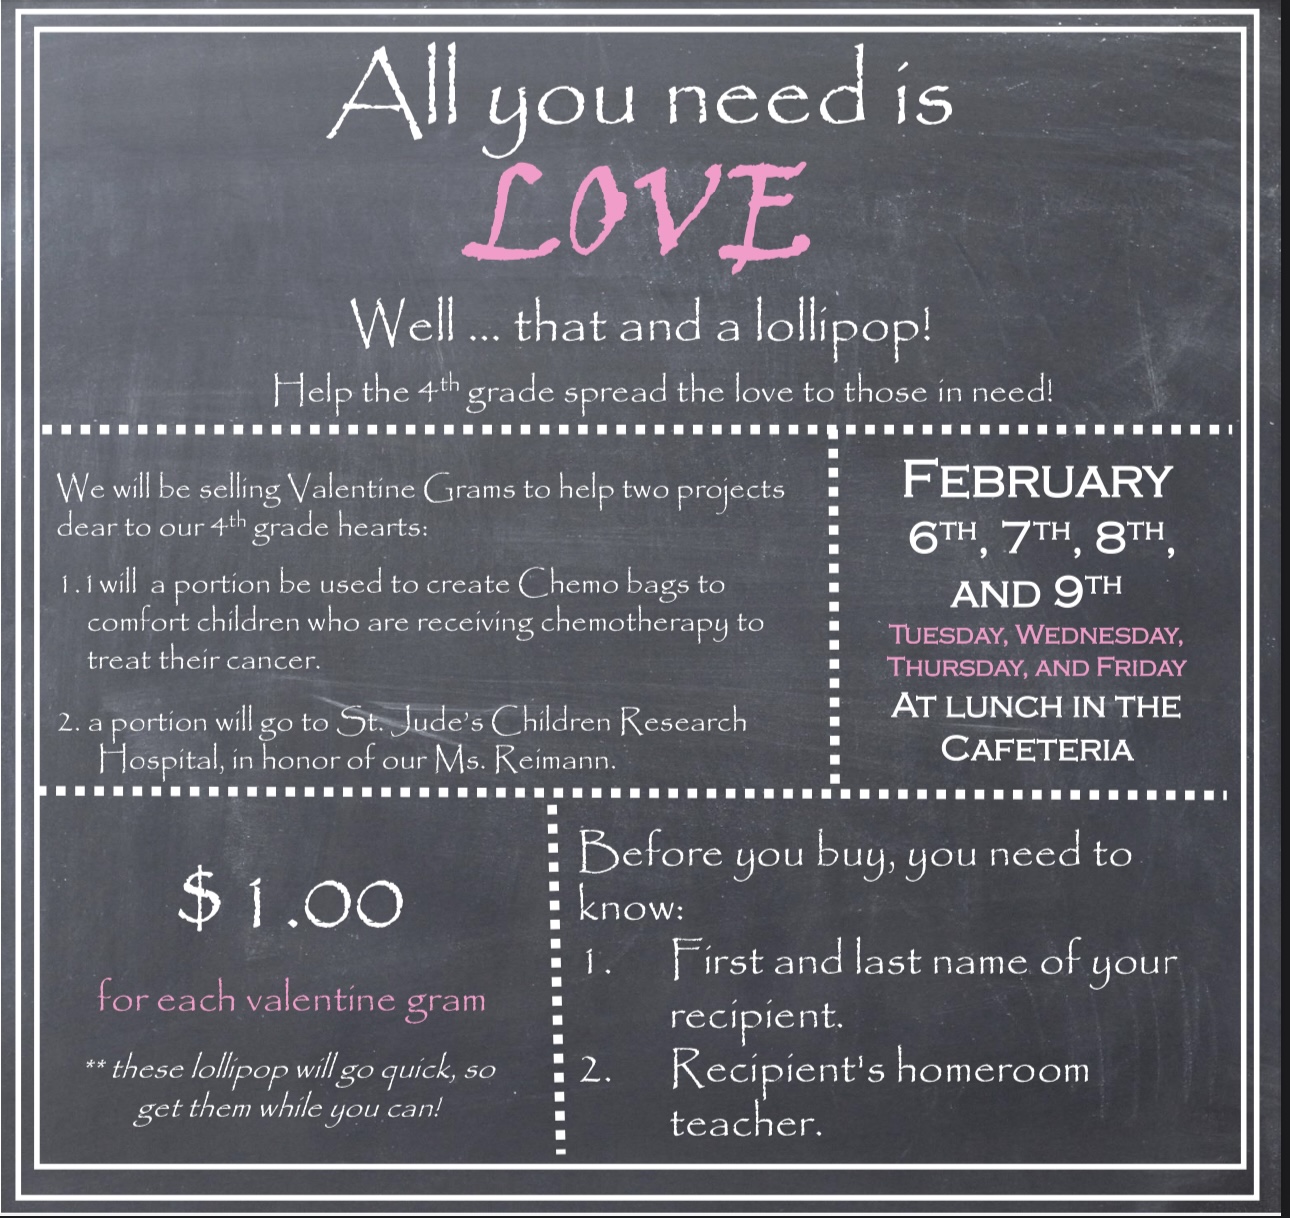 All you need is
LOVE
Well ... that and a lollipop!
Help the 4th grade spread the love to those in need!
We will be selling Valentine Grams to help two projects
dear to our 4th grade hearts:
1.1will a portion be used to create Chemo bags to
comfort children who are receiving chemotherapy to
treat their cancer.
2. a portion will go to St. Jude's Children Research
Hospital, in honor of our Ms. Reimann.
FEBRUARY
6TH, 7TH, 8TH,
AND 9TH
TUESDAY, WEDNESDAY,
THURSDAY, AND FRIDAY
AT LUNCH IN THE
CAFETERIA
$1.00
for each valentine gram
** these lollipop will go quick, so
get them while you can!
Before you buy, you need to
know:
1. First and last name of your
recipient.
2. Recipient's homeroom
teacher.